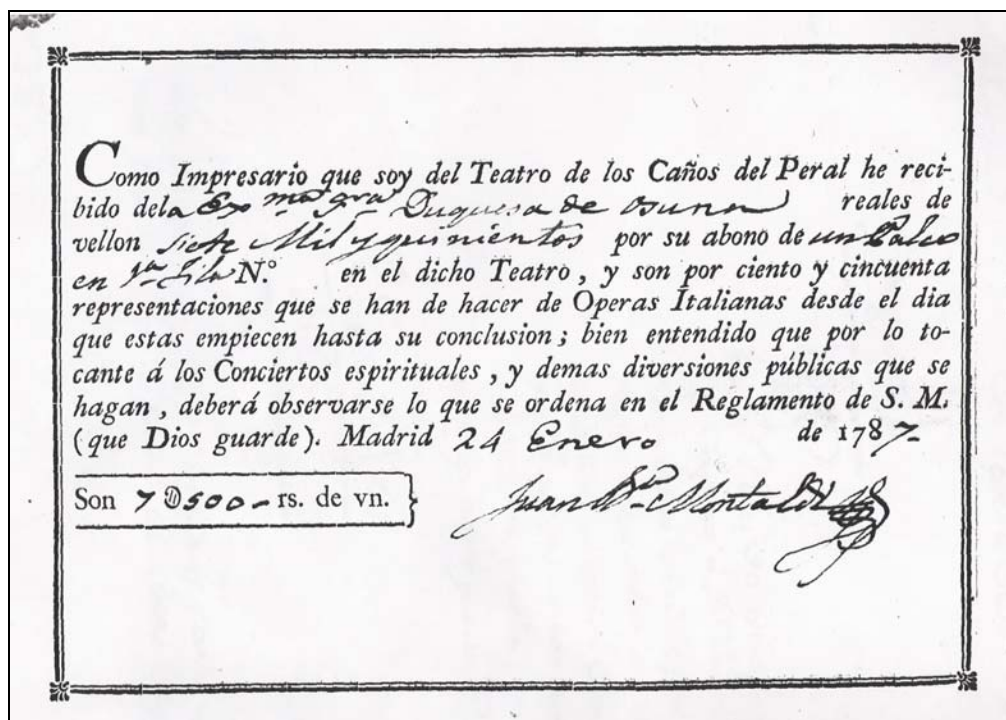 Como Impresario que soy del Teatro de los Caños del Peral he reci-
bido dela Exma Sra Duquesa de osuna reales de
vellon siete Mil y quinientos por su abono de un Palco
en 1a fila N.° en el dicho Teatro, y son por ciento y cincuenta
representaciones que se han de hacer de Operas Italianas desde el dia
que estas empiecen hasta su conclusion; bien entendido que por lo to-
cante á los Conciertos espirituales, y demas diversiones públicas que se
hagan, deberá observarse lo que se ordena en el Reglamento de S. M.
(que Dios guarde). Madrid 24 Enero de 1787-
Son 7 500- rs. de vn.
Juan Bta Montaldi